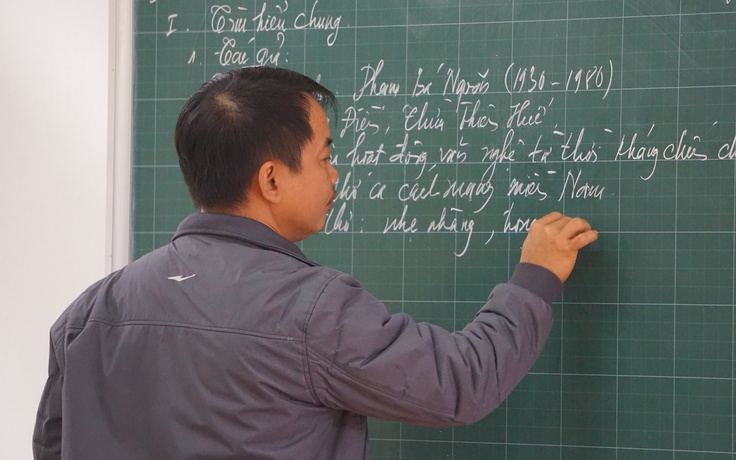 I. Tìm hiểu chung.
1. Tác giả:
Phạm Bá Ngoãn (1930-1980)
Điền, Thừa Thiên Huế.
hoạt động văn nghệ từ thời kháng chiến
ca cách mạng miền Nam.
thơ: nhẹ nhàng,